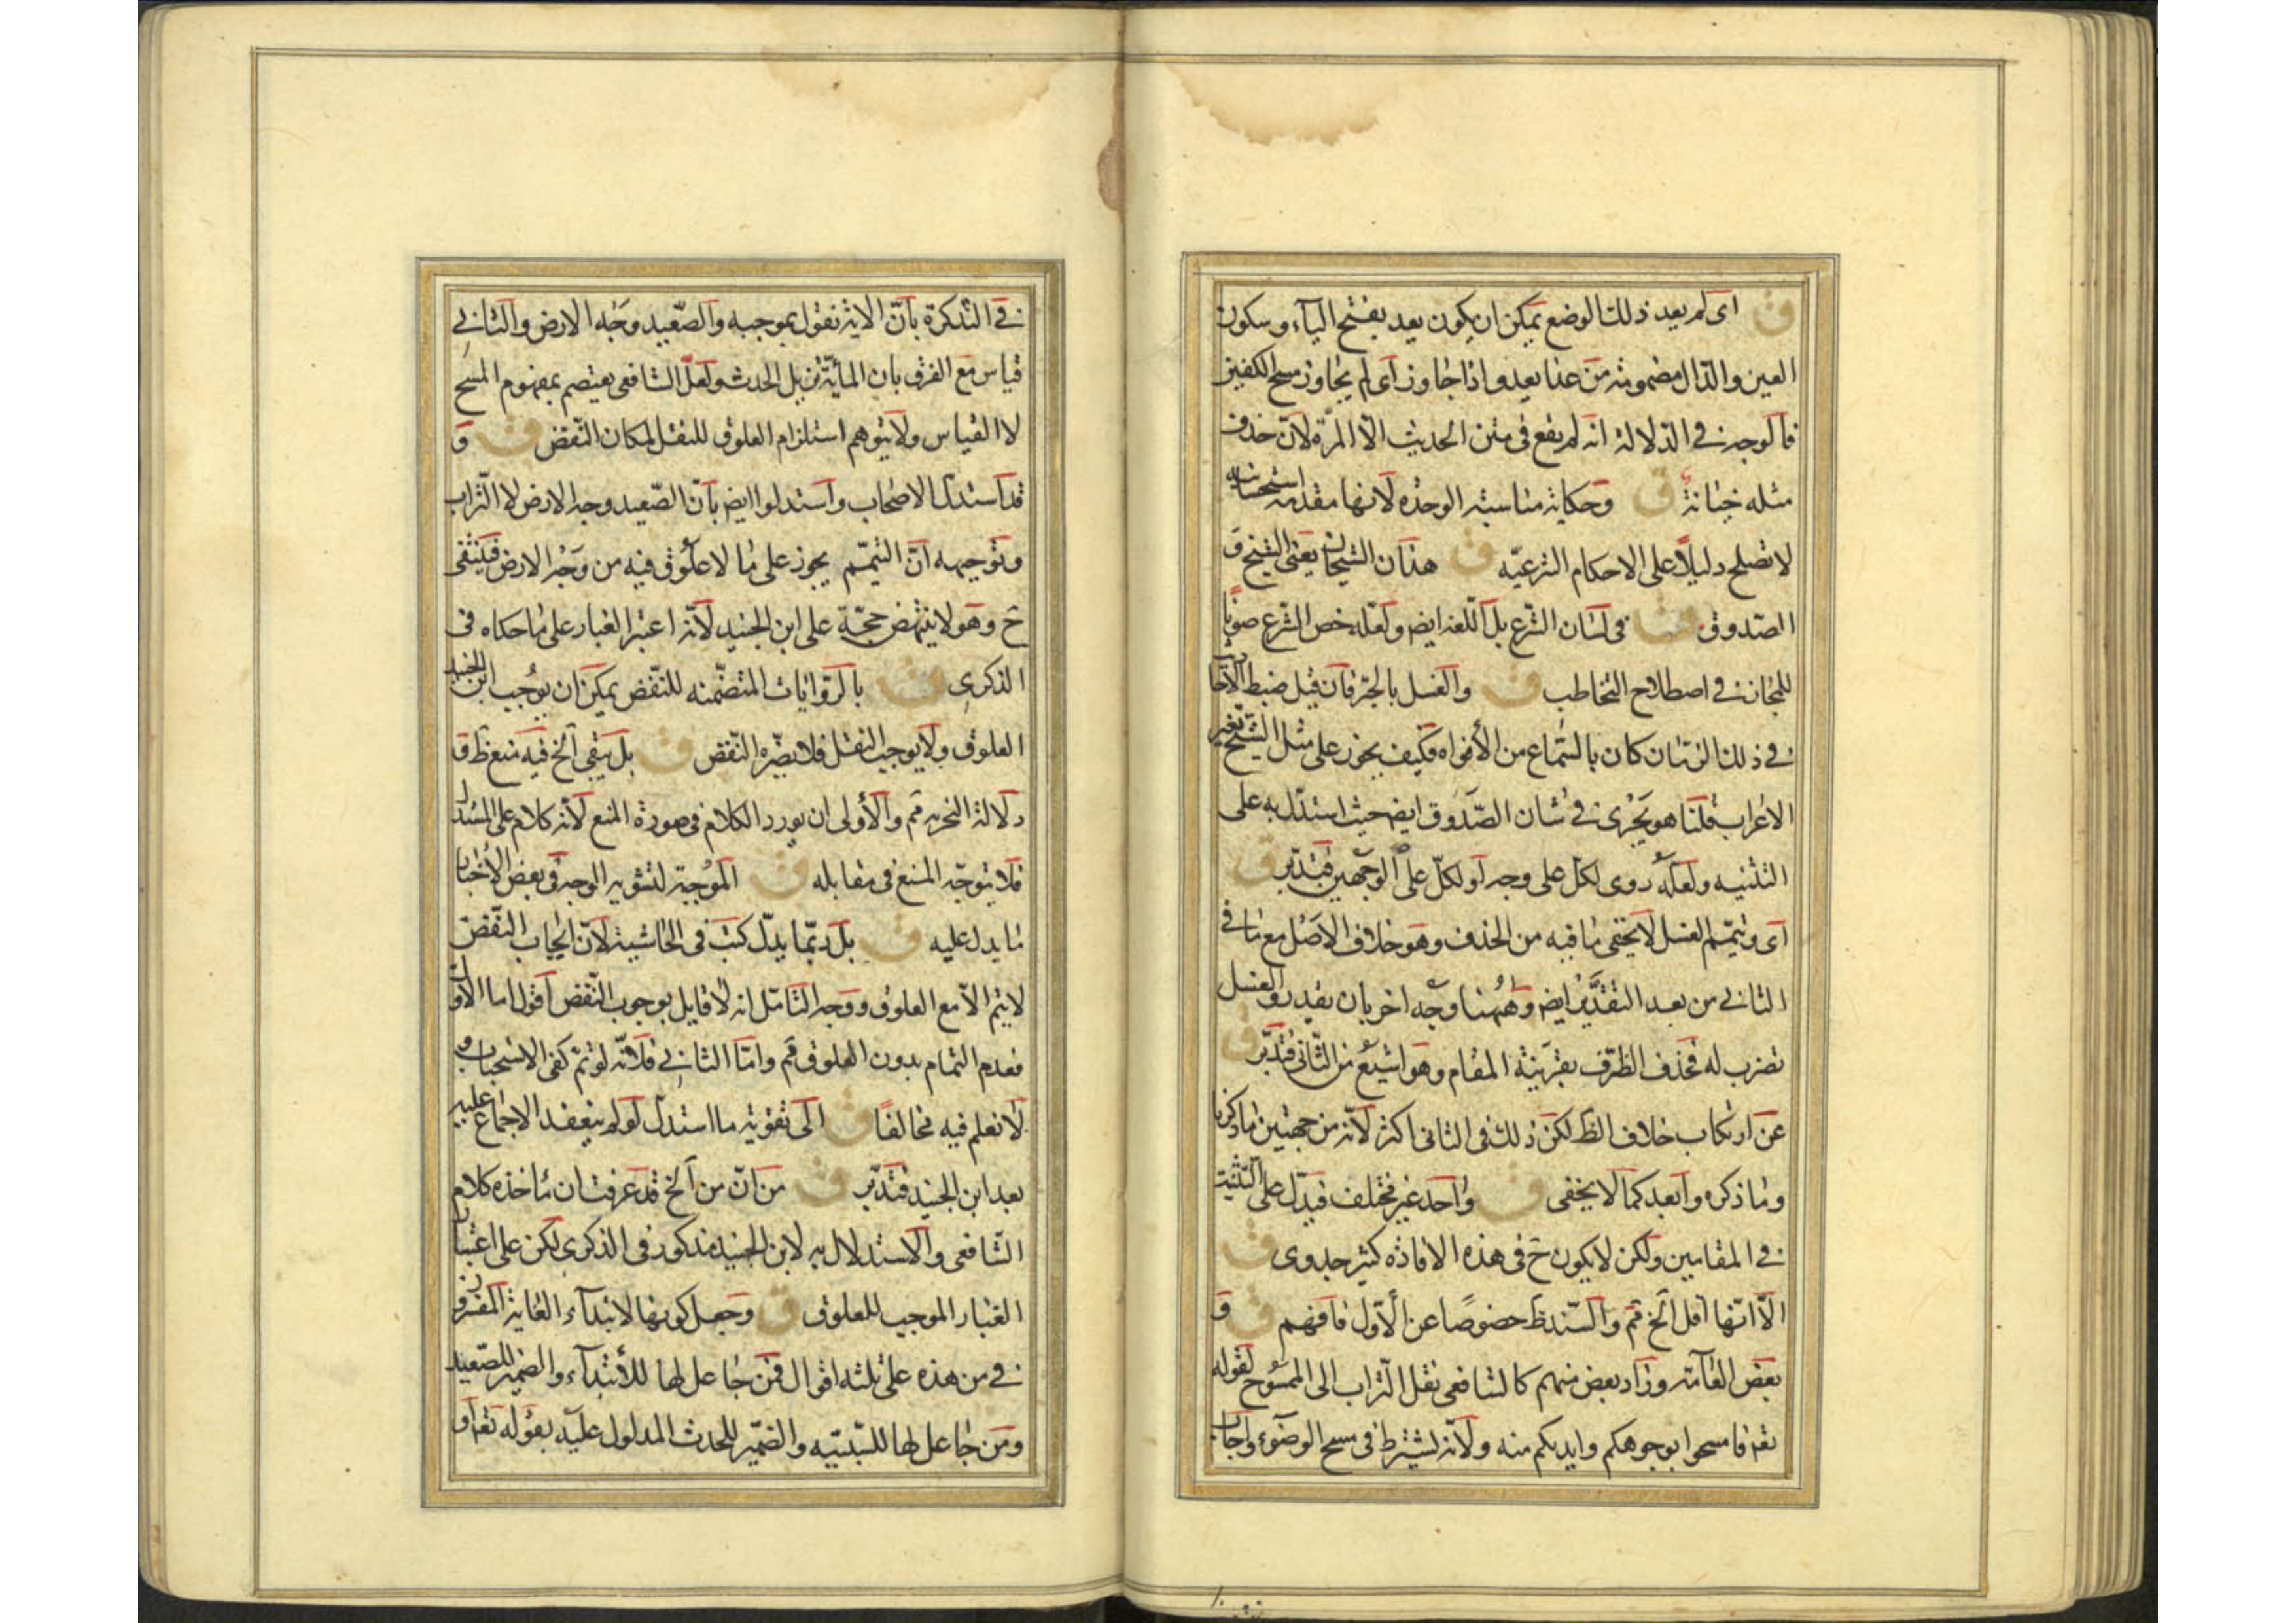 ق اى لم يعد ذلك الوضع يمكن ان يكون يعد بفتح الياء وسكون
العين والدال مضمومة من عدا يعدو اذا جاوز اى لم يجاوز مسح الكفين
فالوجه فى الدلالة انه لم يقع فى متن الحديث الا المرة لان حذف
مثله خيانة ق وحكاية مناسبته الوحدة لانها مقدمة استحسانيه
لا تصلح دليلا على الاحكام الشرعيه ق هذان الشيخان يعنى الشيخ و
الصدوق ق فى لسان الشرع بل اللغة ايض ولعله خص الشرع صونا
للمجاز فى اصطلاح التخاطب ق والغسل بالجر فان قيل ضبط الاخبار
فى ذلك الزمان كان بالسماع من الأفواه فكيف يجوز على مثل الشيخ تغيير
الاعراب قلنا هو يجرى فى شان الصدوق ايض حيث استدل به على
التثنيه ولعله روى لكل على وجه او لكل على الوجهين فتدبر ق
اى وتيمم الغسل لا يخفى ما فيه من الحذف وهو خلاف الاصل مع ما فى
الثانى من بعد التقدير ايض وههنا وجه اخر بان يقدر والغسل
تضرب له فحذف الظرف بقرينة المقام وهو اشيع من الثانى فتدبر ق
عن ارتكاب خلاف الظ لكن ذلك فى الثانى اكثر لانه من جهتين ما ذكرنا
وما ذكره وابعد كما لا يخفى ق واحد غير مختلف فيدل على التثنيت
فى المقامين ولكن لا يكون ح فى هذه الافادة كثير جدوى ق
الا انها اقل الخ ثم والسند ظ خصوصا عن الأول فافهم ق و
بعض العامة وزاد بعض منهم كالشافعى نقل التراب الى الممسوح لقوله
تعه فامسحوا بوجوهكم وايديكم منه ولانه يشترط فى مسح الوضوء واجاب
فى التذكرة بان الاية نقول بموجبه والصعيد وجه الارض والثانى
قياس مع الفرق بان المائية تزيل الحدث ولعل الشافعى يعتصم بمفهوم المسح
لا القياس ولا يتوهم استلزام العلوق للنقل لمكان النقض ق و
قد استدل الاصحاب واستدلوا ايض بان الصعيد وجه الارض لا التراب
وتوجيهه ان التيمم يجوز على ما لا علوق فيه من وجه الارض فينتفى
ح وهو لا ينتهض حجة على ابن الجنيد لانه اعتبر الغبار على ما حكاه فى
الذكرى ق بالروايات المتضمنه للنقض يمكن ان يوجب ابن الجنيد
العلوق ولا يوجب النقل فلا يضره النقض ق بل يبقى الخ فيه منع ظ و
دلالة التحرير ثم والأولى ان يورد الكلام فى صورة المنع لانه كلام على المستدل
فلا يتوجه المنع فى مقابله ق الموجبة لتشويه الوجه فى بعض الأخبار
ما يدل عليه ق بل ربما يدل كتب فى الحاشية لان ايجاب النقض
لا يتم الا مع العلوق ووجه التامل انه لا قايل بوجوب النقض اقول اما الاول
فعدم التمام بدون العلوق ثم واما الثانى فلانه لو تم كفى الاستحباب و
لا نعلم فيه مخالفا ق الى تقوية ما استدل لو لم ينعقد الاجماع عليه
بعد ابن الجنيد فتدبر ق من ان من الخ قد عرفت ان ماخذه كلام
الشافعى والاستدلال به لابن الجنيد مذكور فى الذكرى لكن على اعتبار
الغبار الموجب للعلوق ق وجعل كونها لابتداء الغاية المقرر
فى من هذه على ثلثه اقوال فمن جاعل لها للأبتداء والضمير للصعيد
ومن جاعل لها للسببيه والضمير للحدث المدلول عليه بقوله تعه او